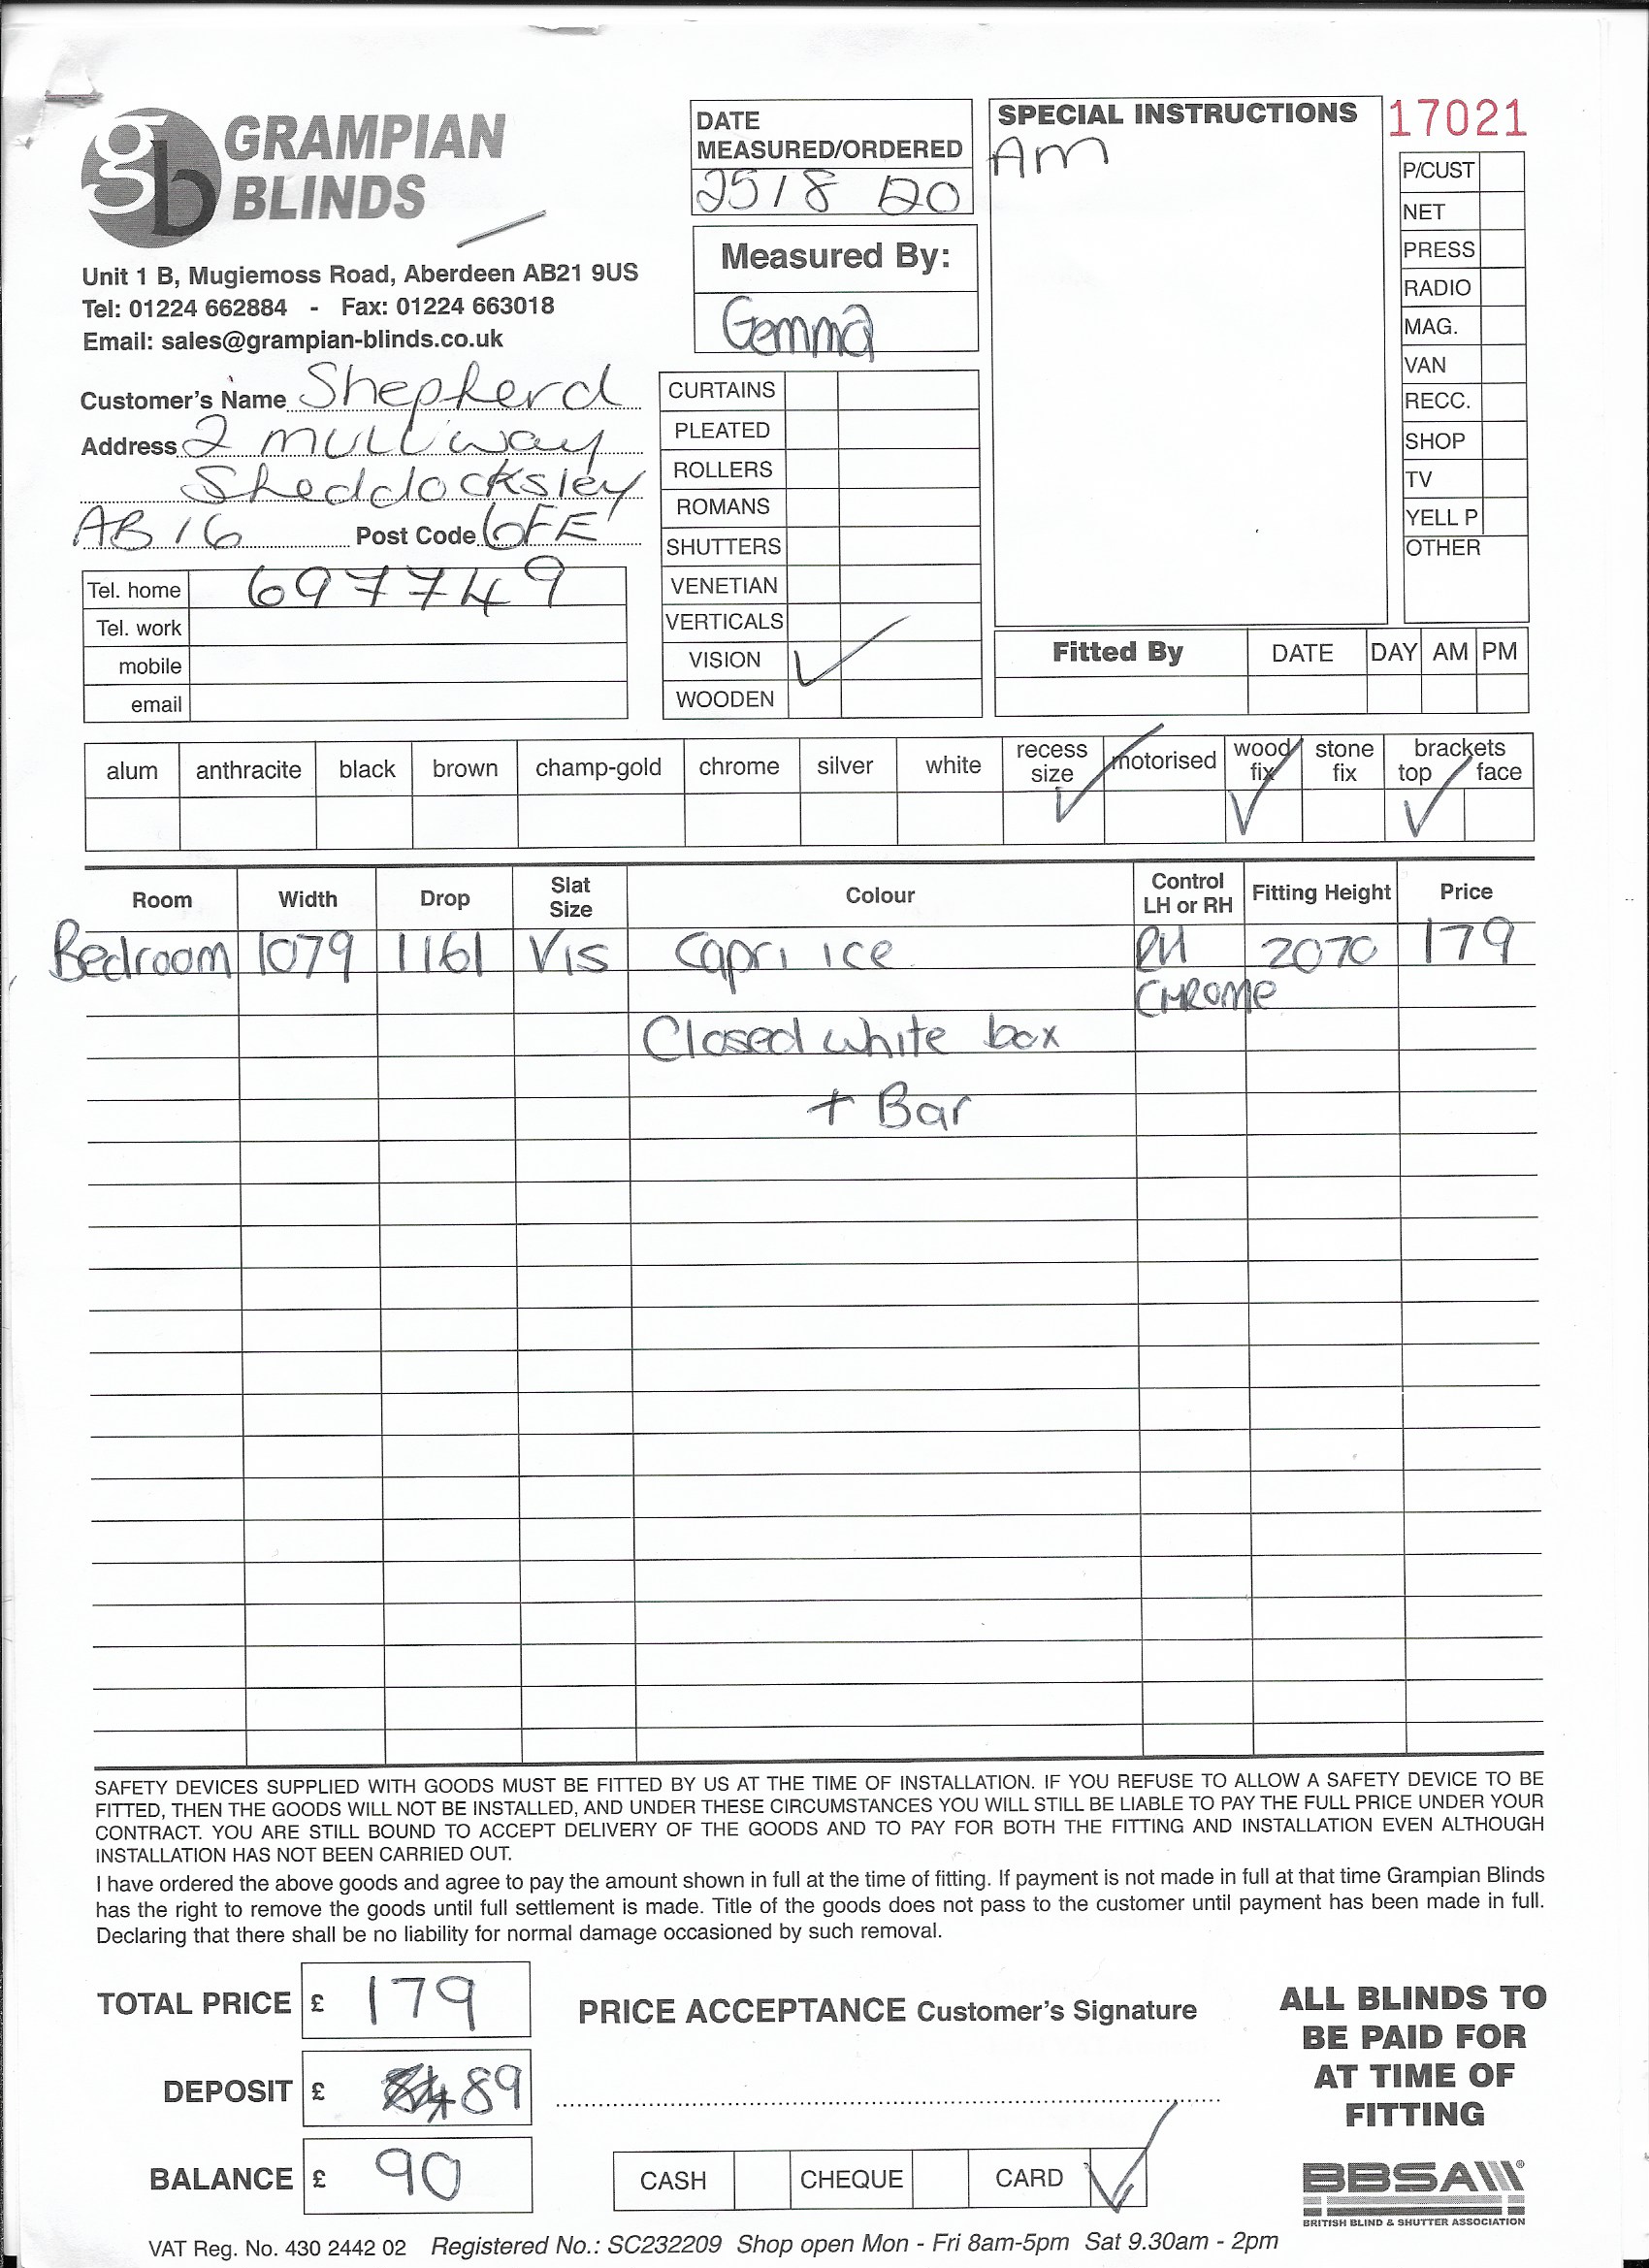 GRAMPIAN
BLINDS
Unit 1 B, Mugiemoss Road, Aberdeen AB21 9US
Tel: 01224 662884 - Fax: 01224 663018
Email: sales@grampian-blinds.co.uk
Customer's Name Shepherd
Address 2 mull way
Sheddocksley
AB16 Post Code 6FE
Tel. home 697749
Tel. work
mobile
email
DATE
MEASURED/ORDERED
25/8 20
Measured By:
Gemma
CURTAINS
PLEATED
ROLLERS
ROMANS
SHUTTERS
VENETIAN
VERTICALS
VISION ✓
WOODEN
SPECIAL INSTRUCTIONS
Am
17021
P/CUST
NET
PRESS
RADIO
MAG.
VAN
RECC.
SHOP
TV
YELL P
OTHER
Fitted By DATE DAY AM PM
alum anthracite black brown champ-gold chrome silver white recess size ✓ motorised wood fix ✓ stone fix brackets top ✓ face
Room Width Drop Slat Size Colour Control LH or RH Fitting Height Price
Bedroom 1079 1161 Vis Capri ice RH 2070 179
CHROME
Closed white box
+ Bar
SAFETY DEVICES SUPPLIED WITH GOODS MUST BE FITTED BY US AT THE TIME OF INSTALLATION. IF YOU REFUSE TO ALLOW A SAFETY DEVICE TO BE
FITTED, THEN THE GOODS WILL NOT BE INSTALLED, AND UNDER THESE CIRCUMSTANCES YOU WILL STILL BE LIABLE TO PAY THE FULL PRICE UNDER YOUR
CONTRACT. YOU ARE STILL BOUND TO ACCEPT DELIVERY OF THE GOODS AND TO PAY FOR BOTH THE FITTING AND INSTALLATION EVEN ALTHOUGH
INSTALLATION HAS NOT BEEN CARRIED OUT.
I have ordered the above goods and agree to pay the amount shown in full at the time of fitting. If payment is not made in full at that time Grampian Blinds
has the right to remove the goods until full settlement is made. Title of the goods does not pass to the customer until payment has been made in full.
Declaring that there shall be no liability for normal damage occasioned by such removal.
TOTAL PRICE £ 179
DEPOSIT £ 89
BALANCE £ 90
PRICE ACCEPTANCE Customer's Signature
CASH CHEQUE CARD ✓
ALL BLINDS TO
BE PAID FOR
AT TIME OF
FITTING
BBSA
BRITISH BLIND & SHUTTER ASSOCIATION
VAT Reg. No. 430 2442 02 Registered No.: SC232209 Shop open Mon - Fri 8am-5pm Sat 9.30am - 2pm